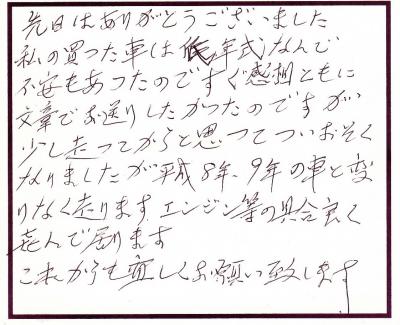 先日はありがとうございました
私の買った車は低年式なんで
不安もあったのですぐ感想とともに
文章でお送りしたかったのですが
少し走ってからと思ってついおそく
なりましたが平成8年、9年の車と変
りなく走ります エンジン等の具合良く
喜んで居ります
これからも宜しくお願い致します